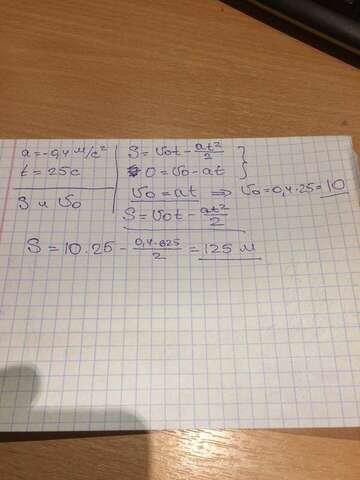 a = -0,4 м/с²
t = 25с
S и υ₀
S = υ₀t - at²/2
0 = υ₀ - at
υ₀ = at ⇒ υ₀ = 0,4·25 = 10
S = υ₀t - at²/2
S = 10·25 - 0,4·625/2 = 125 м